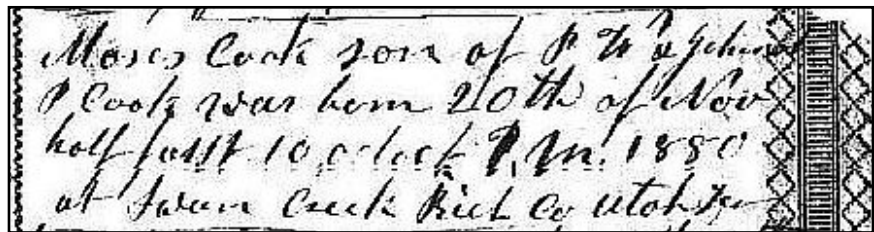 Moses Cook son of P W & Johna
P Cook was born 20th of Nov
half past 10 oclock P.M. 1880
at Swan Creek Rich Co Utah